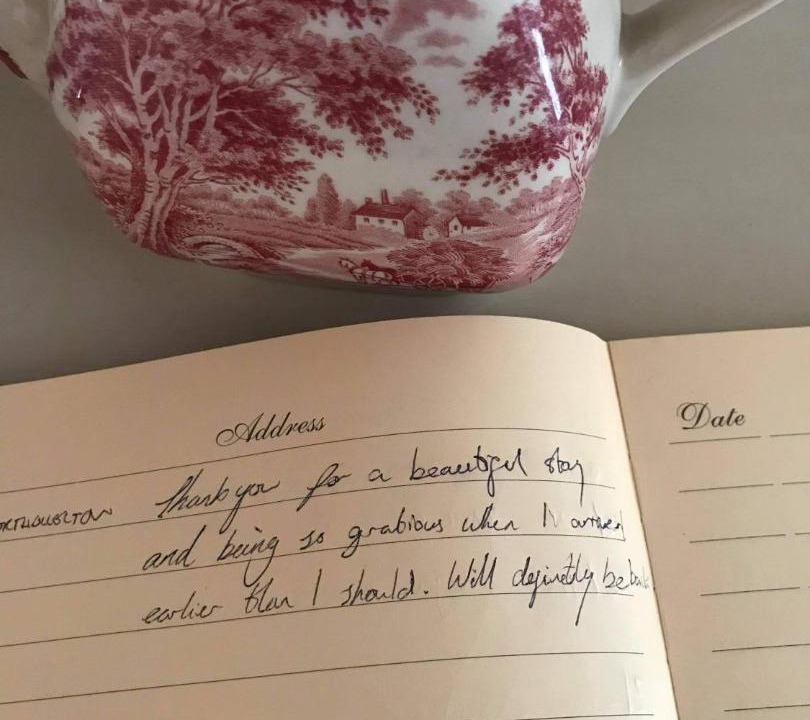 Address
Date
Thank you for a beautiful stay
and being so grabious when I arrived
earlier than I should. Will definetly be back